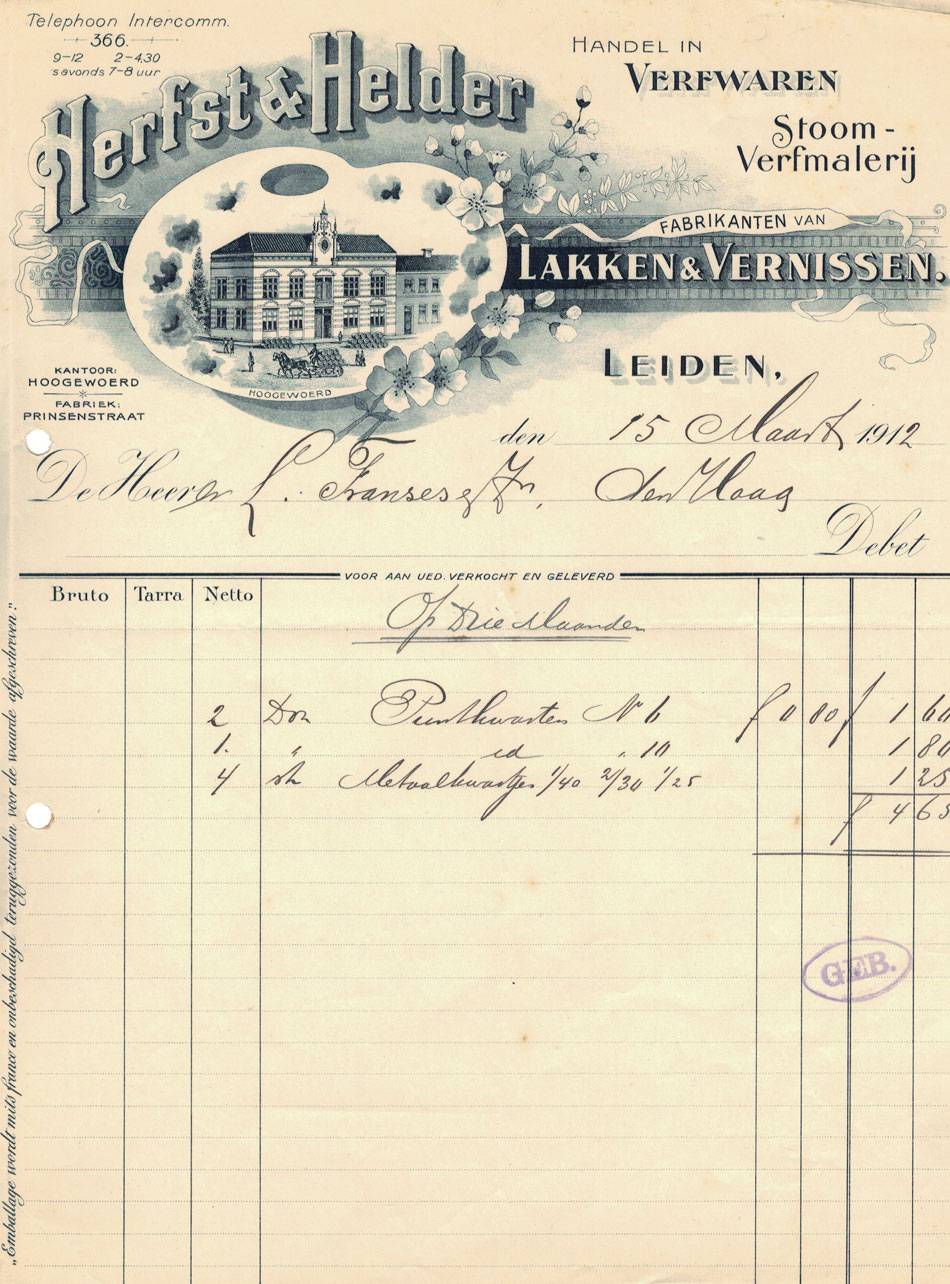 Telephoon Intercomm.
366.
9-12 2-4.30
savonds 7-8 uur
Herfst & Helder
HANDEL IN
VERFWAREN
Stoom-
Verfmalerij
FABRIKANTEN VAN
LAKKEN & VERNISSEN.
HOOGEWOERD
LEIDEN,
KANTOOR:
HOOGEWOERD
FABRIEK:
PRINSENSTRAAT
den 15 Maart 1912
De Heeren L. Franses & Zn, den Haag
Debet
VOOR AAN UED. VERKOCHT EN GELEVERD
Bruto Tarra Netto
Op Drie Maanden
2 Dzn Puntkwasten No 6 f 0 80 f 1 60
1. " id " 10 1 80
4 st Metaalkwastjes 1/40 2/30 1/25 1 25
f 4 65
GEB.
„Emballage wordt mits franco en onbeschadigd teruggezonden voor de waarde afgeschreven."